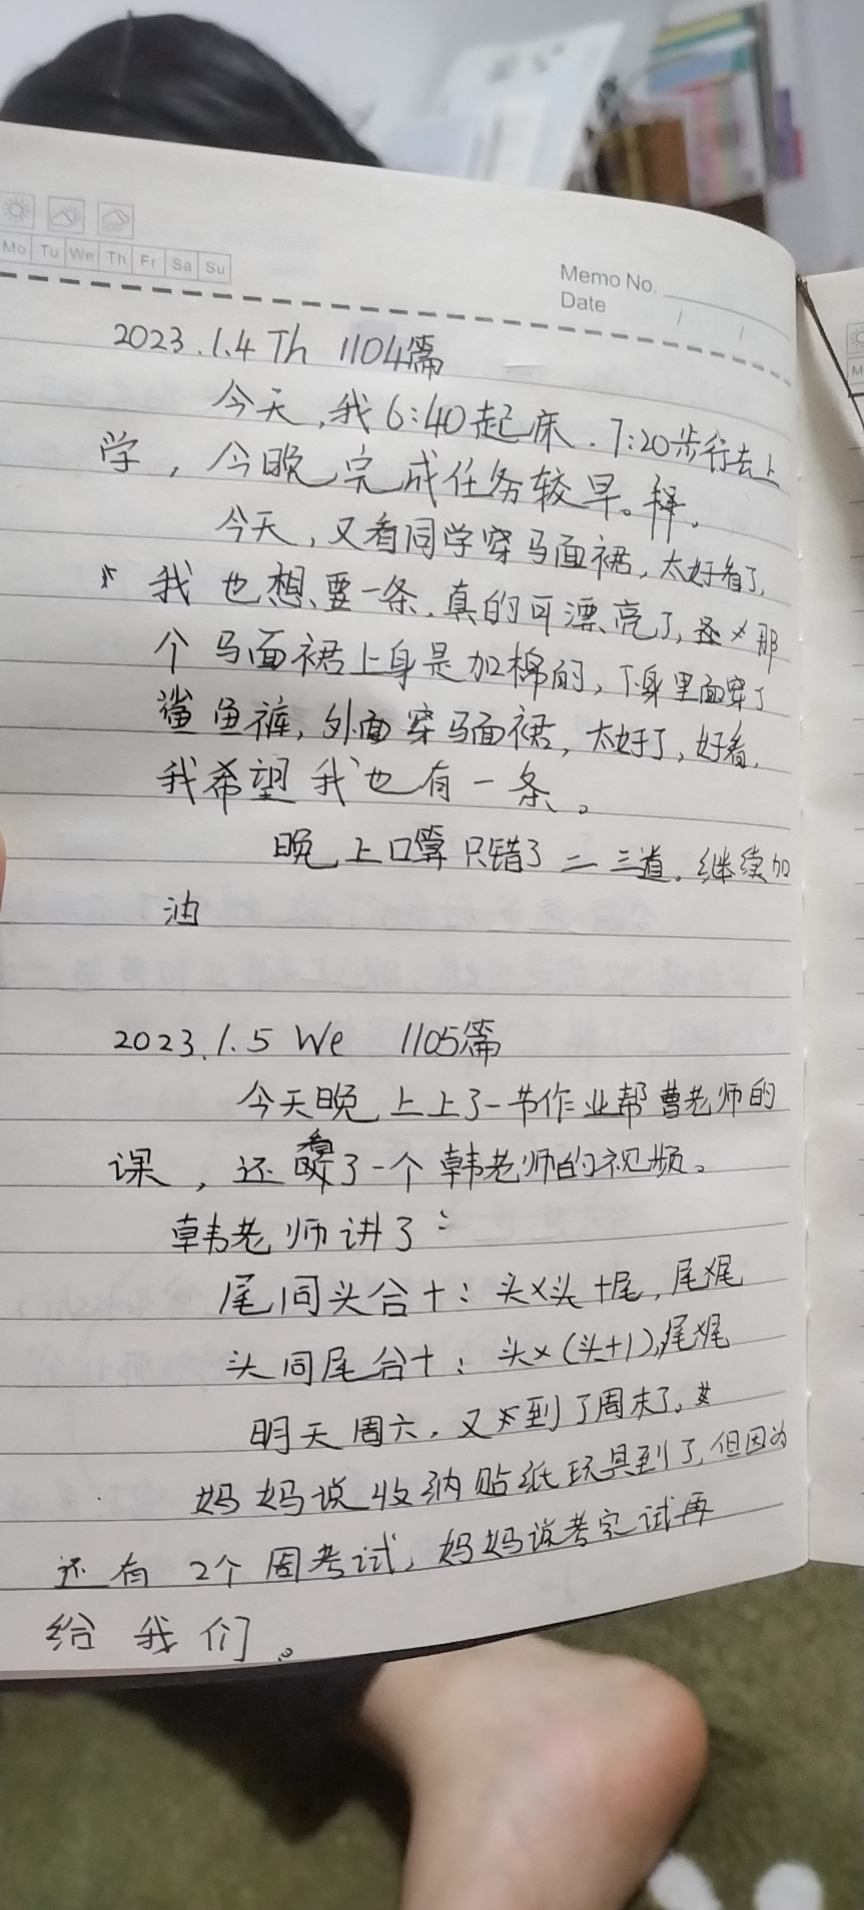 Mo Tu We Th Fr Sa Su
Memo No.
Date / /
2023.1.4 Th 1104篇
今天,我6:40起床.7:20步行去上
学,今晚完成任务较早。棒。
今天,又看同学穿马面裙,太好看了,
我也想要一条,真的可漂亮了,那
个马面裙上身是加棉的,下身里面穿了
鲨鱼裤,外面穿马面裙,太好了,好看,
我希望我也有一条。
晚上口算只错了二三道。继续加
油
2023.1.5 We 1105篇
今天晚上上了一节作业帮曹老师的
课,还看了一个韩老师的视频。
韩老师讲了:
尾同头合十:头×头+尾,尾×尾
头同尾合十:头×(头+1),尾×尾
明天周六,又到了周末了。
妈妈说收纳贴纸玩具到了,但因为
还有2个周考试,妈妈说考完试再
给我们。
M